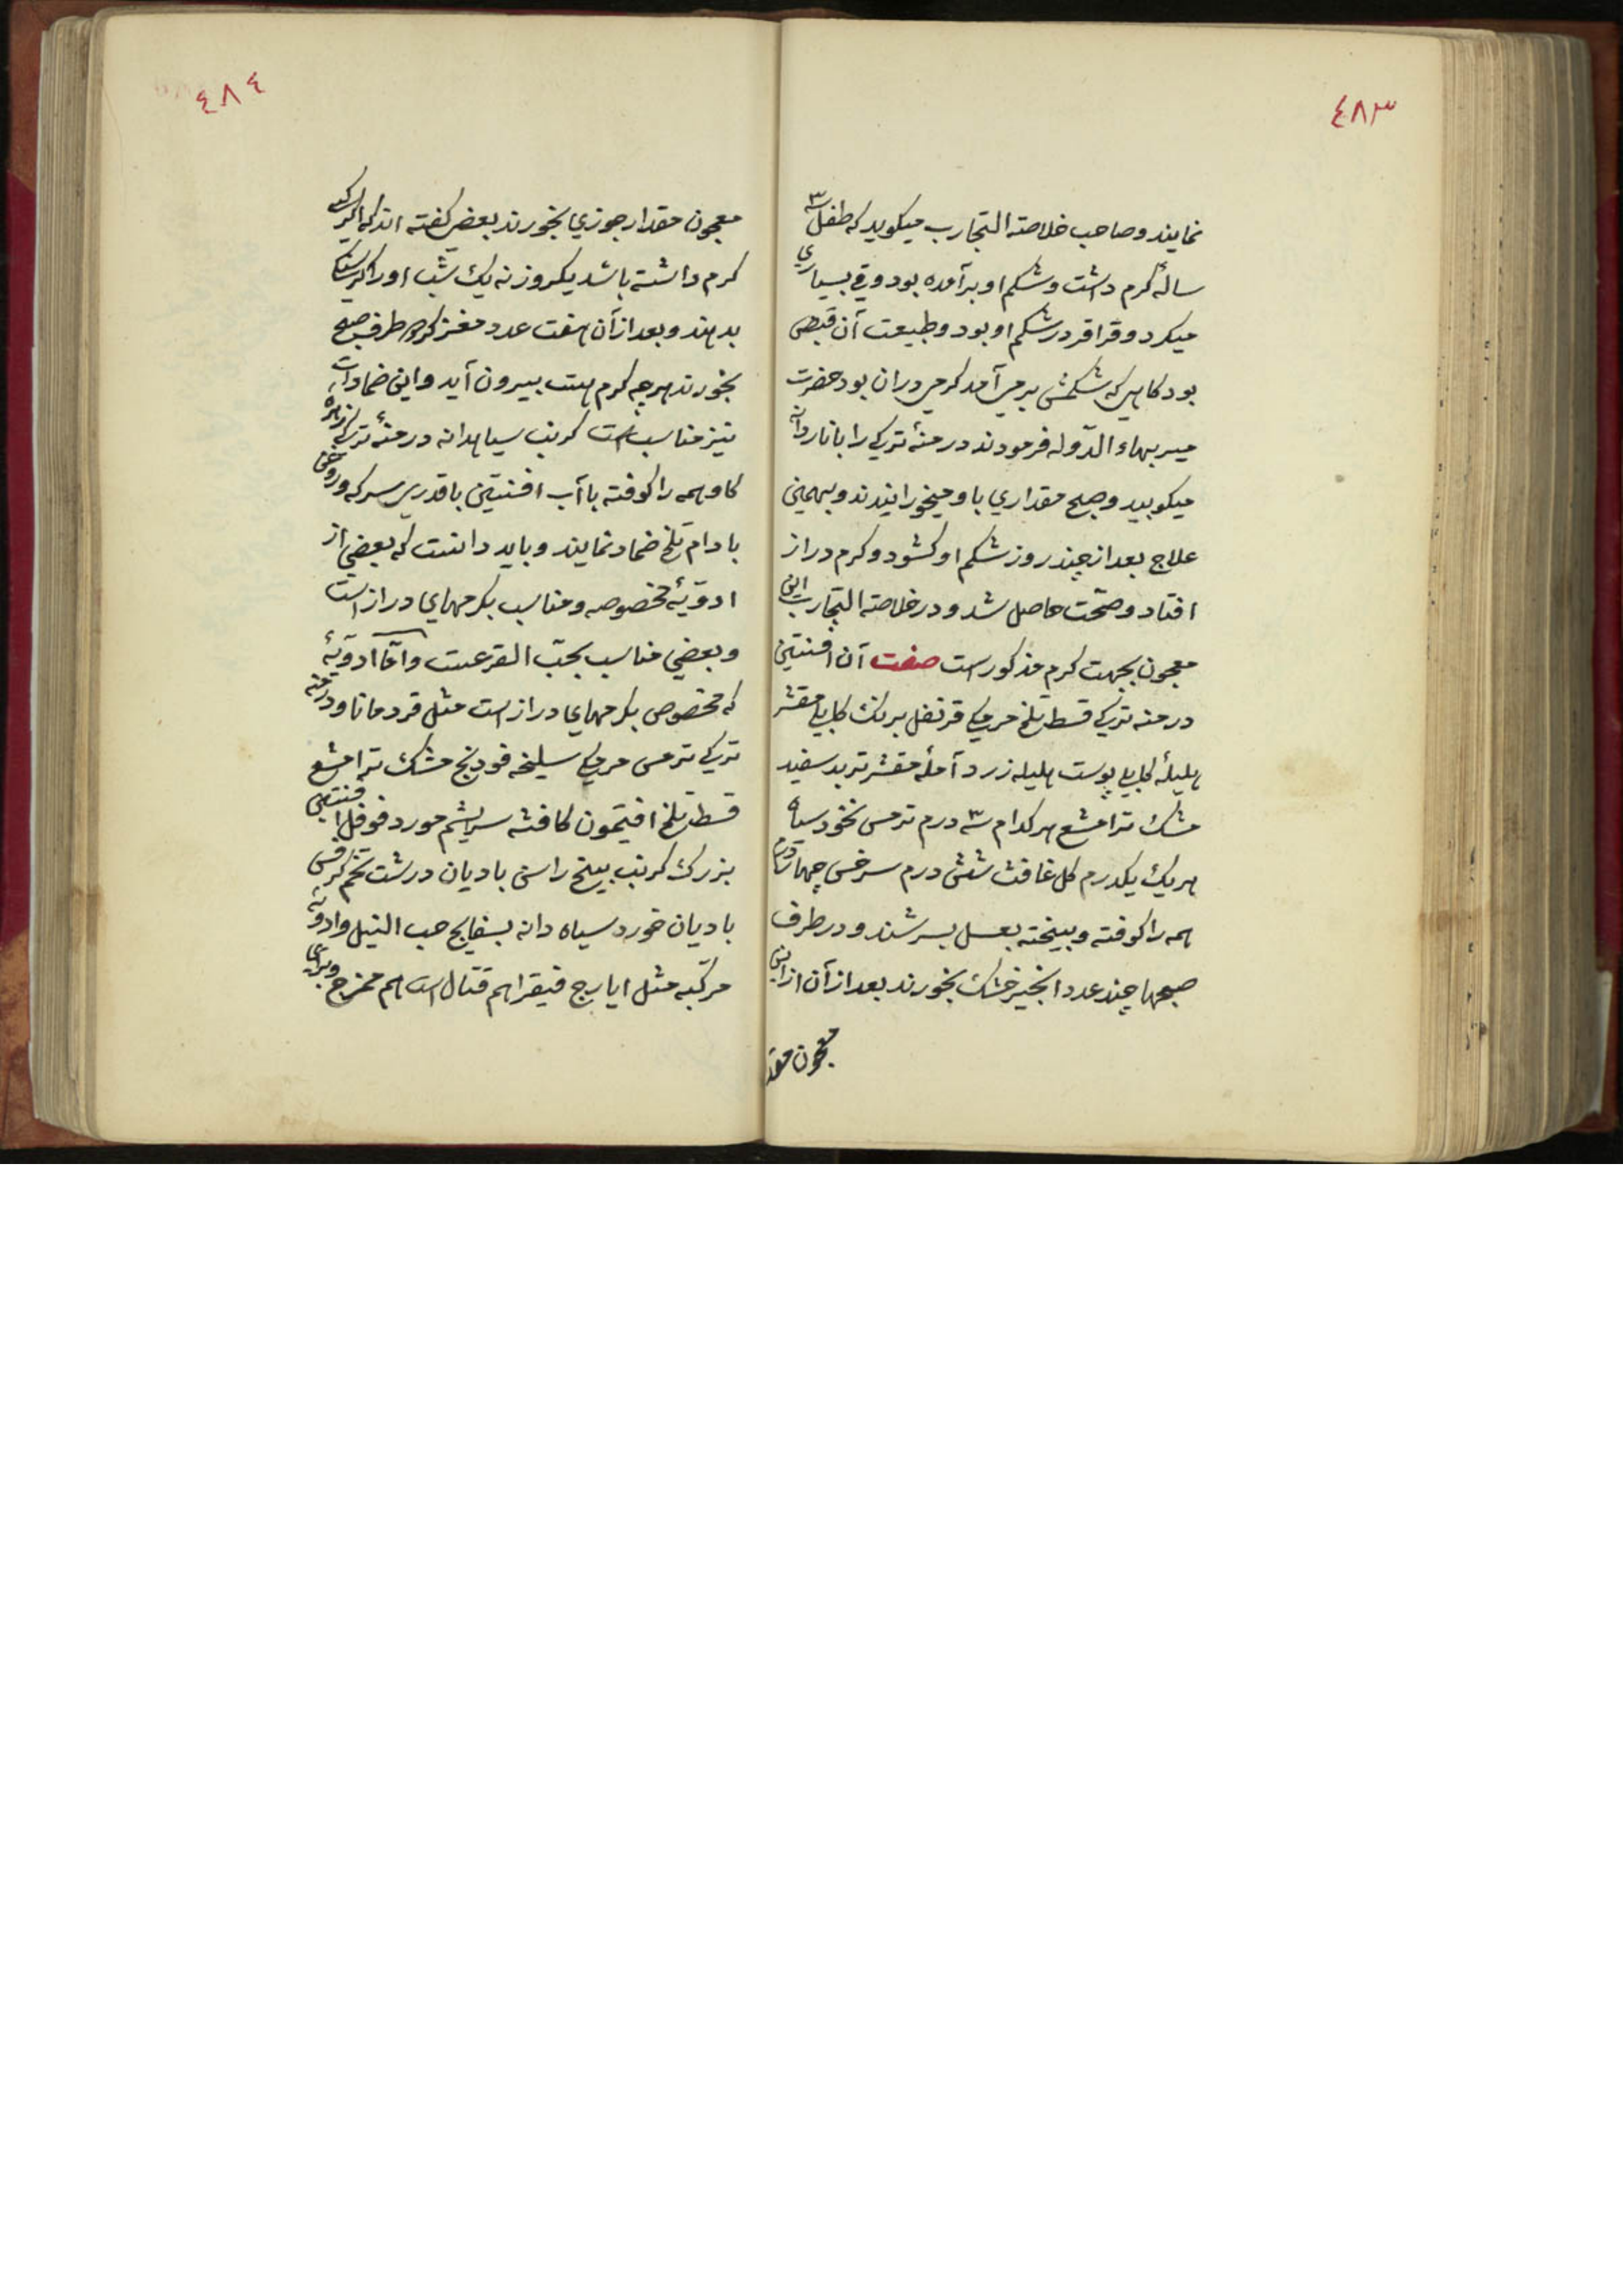 ٤٨٣
نمایند و صاحب خلاصة التجارب میکوید که طفل سه
ساله کرم داشت و شکم او برآمده بود و قی بسیاری
میکرد و قراقر در شکم او بود و طبیعت آن قبض
بود کاهی که شکمش بر می آمد کرمی دران بود حضرت
میر بهاء الدّوله فرمودند درمنهٔ ترکی را با ناردانه
میکوبید و صبح مقداری باو میخورانیدند و بهمین
علاج بعد از چند روز شکم او کشود و کرم دراز
افتاد و صحّت حاصل شد و در خلاصة التجارب این
معجون بجهت کرم مذکور است صفت آن افسنتین
درمنه ترکی قسط تلخ مرمکی قرنفل برنک کابلی مقشر
هلیلهٔ کابلی پوست هلیله زرد آملهٔ مقشر تربد سفید
مشک ترامشع هر کدام سه درم ترمس نخود سیاه
هر یک یکدرم کل غافث شش درم سرخس چهار درم
همه را کوفته و بیخته بعسل بسرشند و در طرف
صبحها چند عدد انجیر خشک بخورند بعد از آن از این
معجون مقد
٤٨٤
معجون مقدار جوزی بخورند بعضی کفته اند که اکر کسی
کرم داشته باشد یکروز نه یک شب او را
بدهند و بعد از آن هفت عدد مغز کردو طرف صبح
بخورند هر چه کرم هست بیرون آید و این ضمادات
نیز مناسب است کرنب سیاهدانه درمنهٔ ترکی زهرهٔ
کاو همه را کوفته با آب افسنتین با قدری سرکه و روغن
بادام تلخ ضماد نمایند و باید دانست که بعضی از
ادویهٔ مخصوصه و مناسب بکرمهای دراز است
و بعضی مناسب بحبّ القرعست و امّا ادویهٔ
که مخصوص بکرمهای دراز است مثل قردمانا و درمنه
ترکی ترمس مرمکی سلیخه فودنج مشک ترامشع
قسط تلخ افتیمون کافشه سریشم مورد فوفل افسنتین
بزرک کرنب بیخ راسن بادیان درشت تخم کرفس
بادیان خورد سیاه دانه بسفایج حب النیل و ادویهٔ
مرکبه مثل ایارج فیقرا هم قتال است هم مخرج و برای